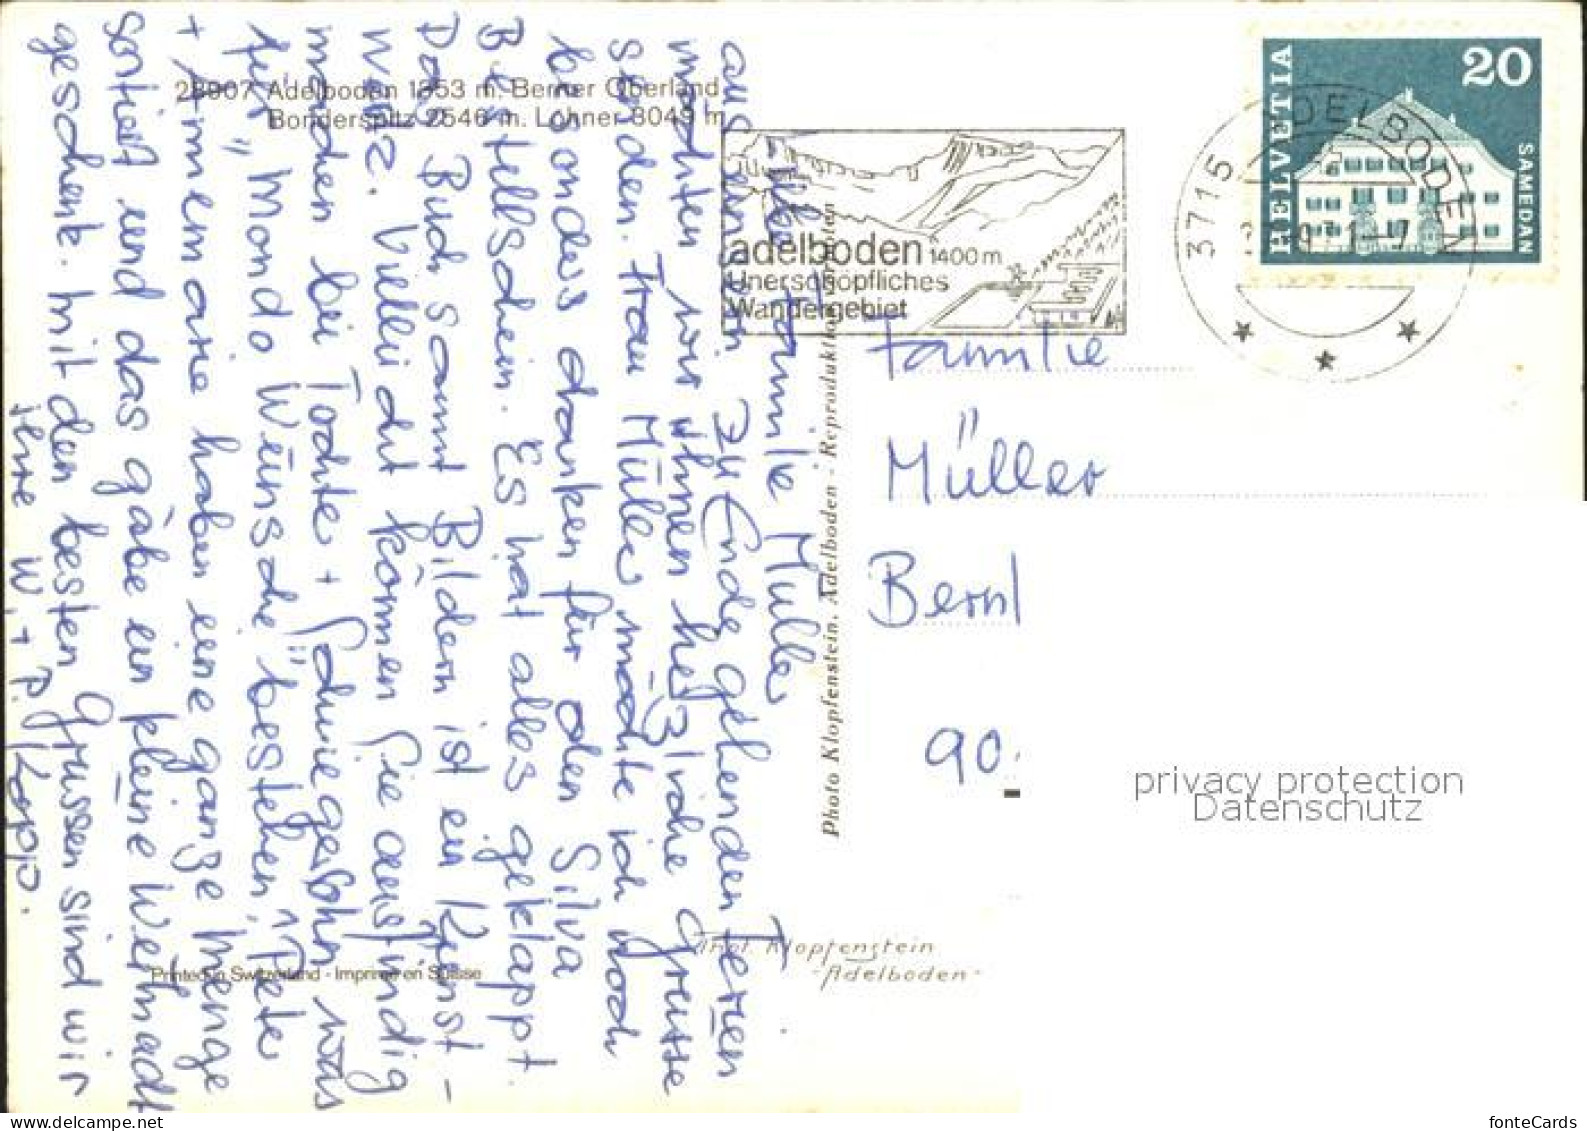 28907 Adelboden 1353 m. Berner Oberland
Bonderspitz 2546 m. Lohner 3049 m
Liebe Familie Müller
aus unseren zu Ende gehenden Ferien
möchten wir Ihnen herzliche Grüsse
senden. Frau Müller möchte ich noch
besonders danken für den Silva
Bestellschein. Es hat alles geklappt.
Das Buch samt Bildern ist ein Kunst-
werk. Vielleicht können Sie ausfindig
machen bei Tochter + Schwiegersohn was
für "Mondo Wünsche" bestehen, Peter
+ Annemarie haben eine ganze Menge
sortiert und das gäbe ein kleine Weihnacht
geschenk. Mit den besten Grüssen sind wir
Ihre W. + P.
HELVETIA
20
SAMEDAN
3715 ADELBODEN
adelboden 1400 m
Unerschöpfliches
Wandergebiet
Familie
Müller
Bern
90.
Photo Klopfenstein, Adelboden - Reproduktion verboten
Phot. Klopfenstein
-Adelboden-
Printed in Switzerland - Imprimé en Suisse
privacy protection
Datenschutz
delcampe.net
fonteCards